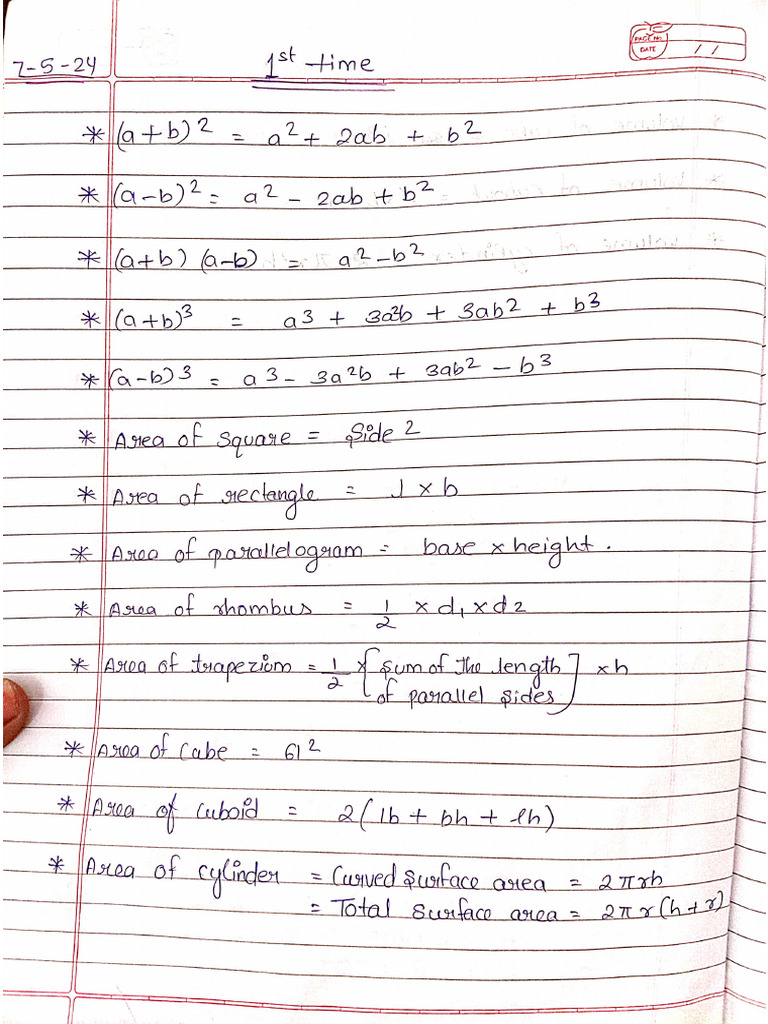 PAGE NO.
DATE / /
7-5-24 1st time
* (a+b)² = a² + 2ab + b²
* (a-b)² = a² - 2ab + b²
* (a+b) (a-b) = a² - b²
* (a+b)³ = a³ + 3a²b + 3ab² + b³
* (a-b)³ = a³ - 3a²b + 3ab² - b³
* Area of square = Side²
* Area of rectangle = l × b
* Area of parallelogram = base × height.
* Area of rhombus = 1/2 × d1 × d2
* Area of trapezium = 1/2 × [sum of the length
of parallel sides] × h
* Area of Cube = 6l²
* Area of cuboid = 2(lb + bh + lh)
* Area of cylinder = Curved surface area = 2πrh
= Total surface area = 2πr(h+r)